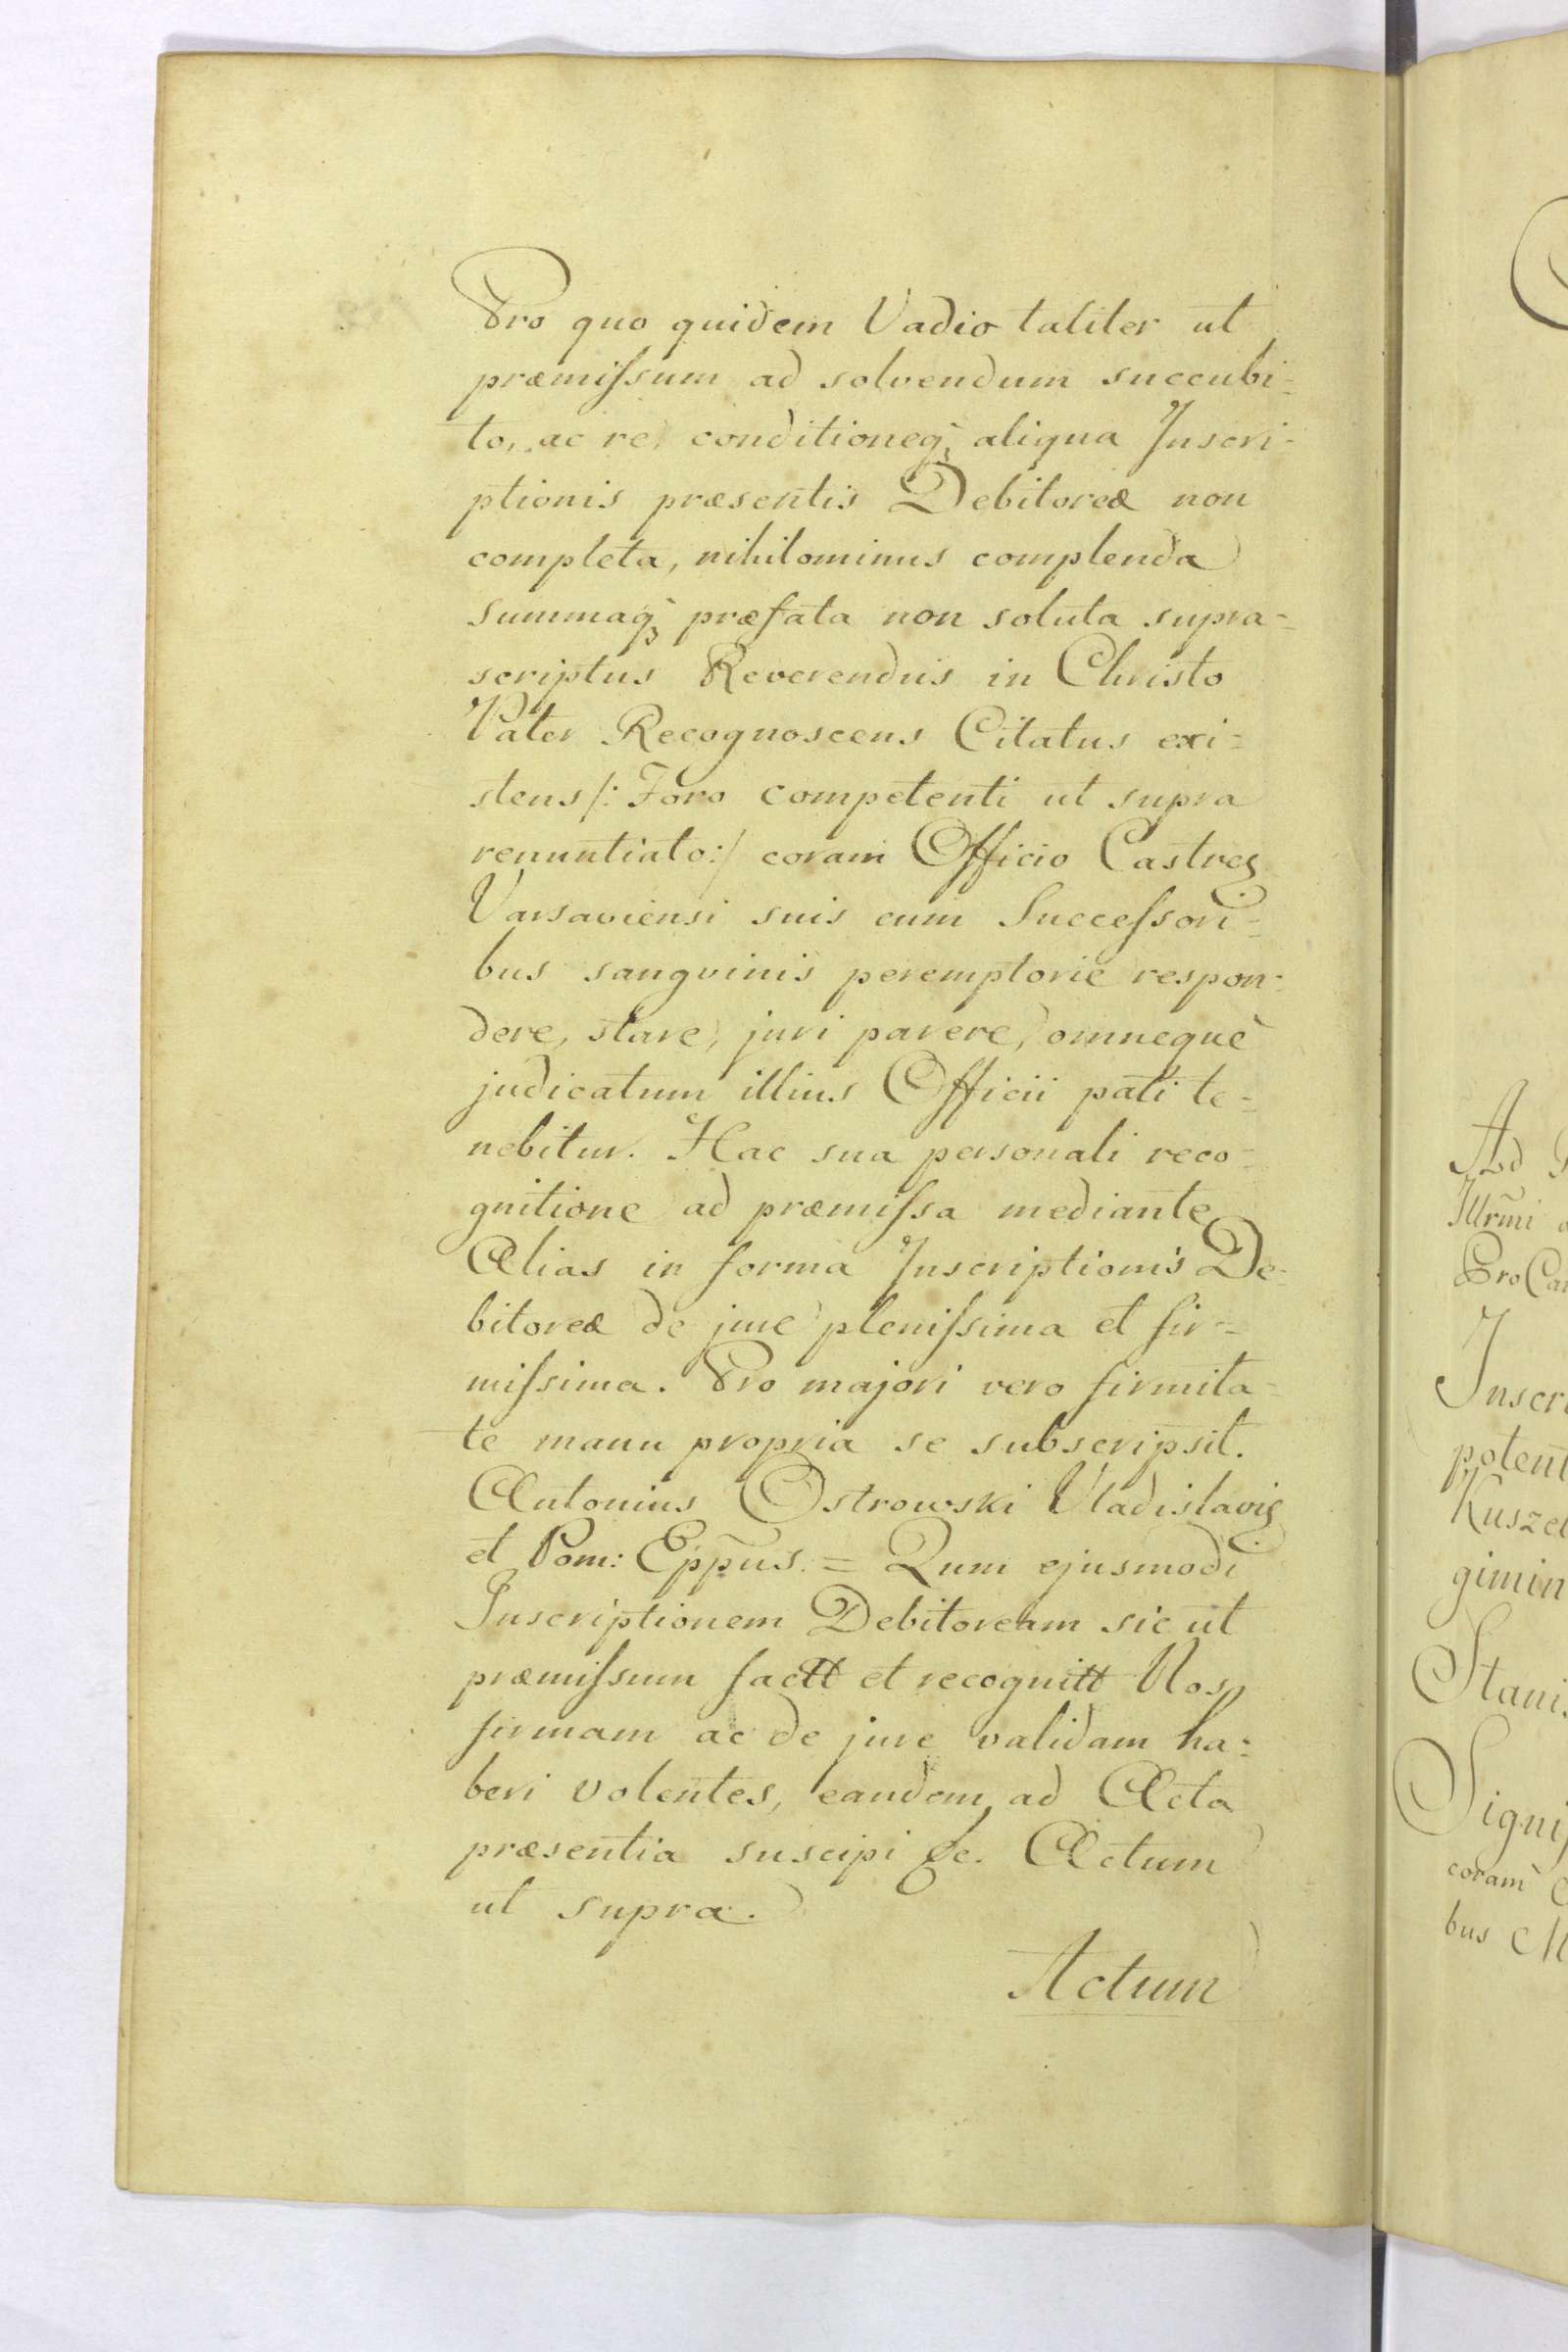 Pro quo quidem Vadio taliter ut
præmiſsum ad solvendum succubi=
to, ac re, conditioneq3 aliqua Inscri-
ptionis præsentis Debitoreæ non
completa, nihilominus complenda
summaq3 præfata non soluta supra=
scriptus Reverendus in Christo
Pater Recognoscens Citatus exi=
stens /: Foro competenti ut supra
renuntiato :/ coram Officio Castreñ
Varsaviensi suis cum Succeſsori=
bus sangvinis peremptorie respon=
dere, stare, juri parere, omneque
judicatum illius Officii pati te=
nebitur. Hac sua personali reco=
gnitione ad præmiſsa mediante
Alias in forma Inscriptionis De=
bitoreæ de jure pleniſsima et fir=
miſsima. Pro majori vero firmita=
te manu propria se subscripsit.
Antonius Ostrowski Vladislavieñ
et Pom: Epp̃us. = Qum ejusmodi
Inscriptionem Debitoream sic ut
præmiſsum factt et recognitt Nos
firmam ac de jure validam ha=
beri volentes, eandem ad Acta
præsentia suscipi &c. Actum
ut supra.
Actum
Ad
Illr̃mi
Pro Can
Inscri
potent
Kuszel
gimin
Stanis
Signif
coram
bus M